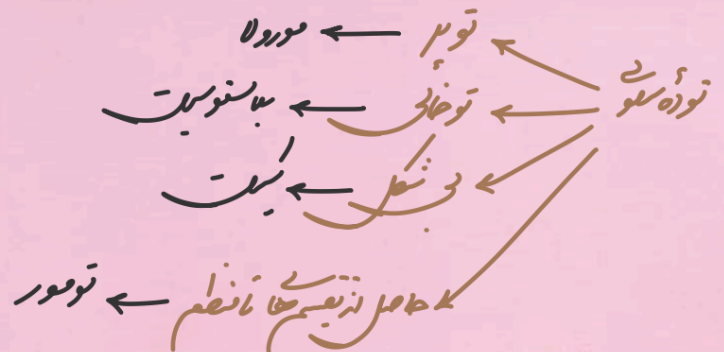 تودهٔ سلولی
توپر ← مورولا
توخالی ← بلاستوسیت
بی شکل ←
حاصل از تقسیم‌های نامنظم ← تومور